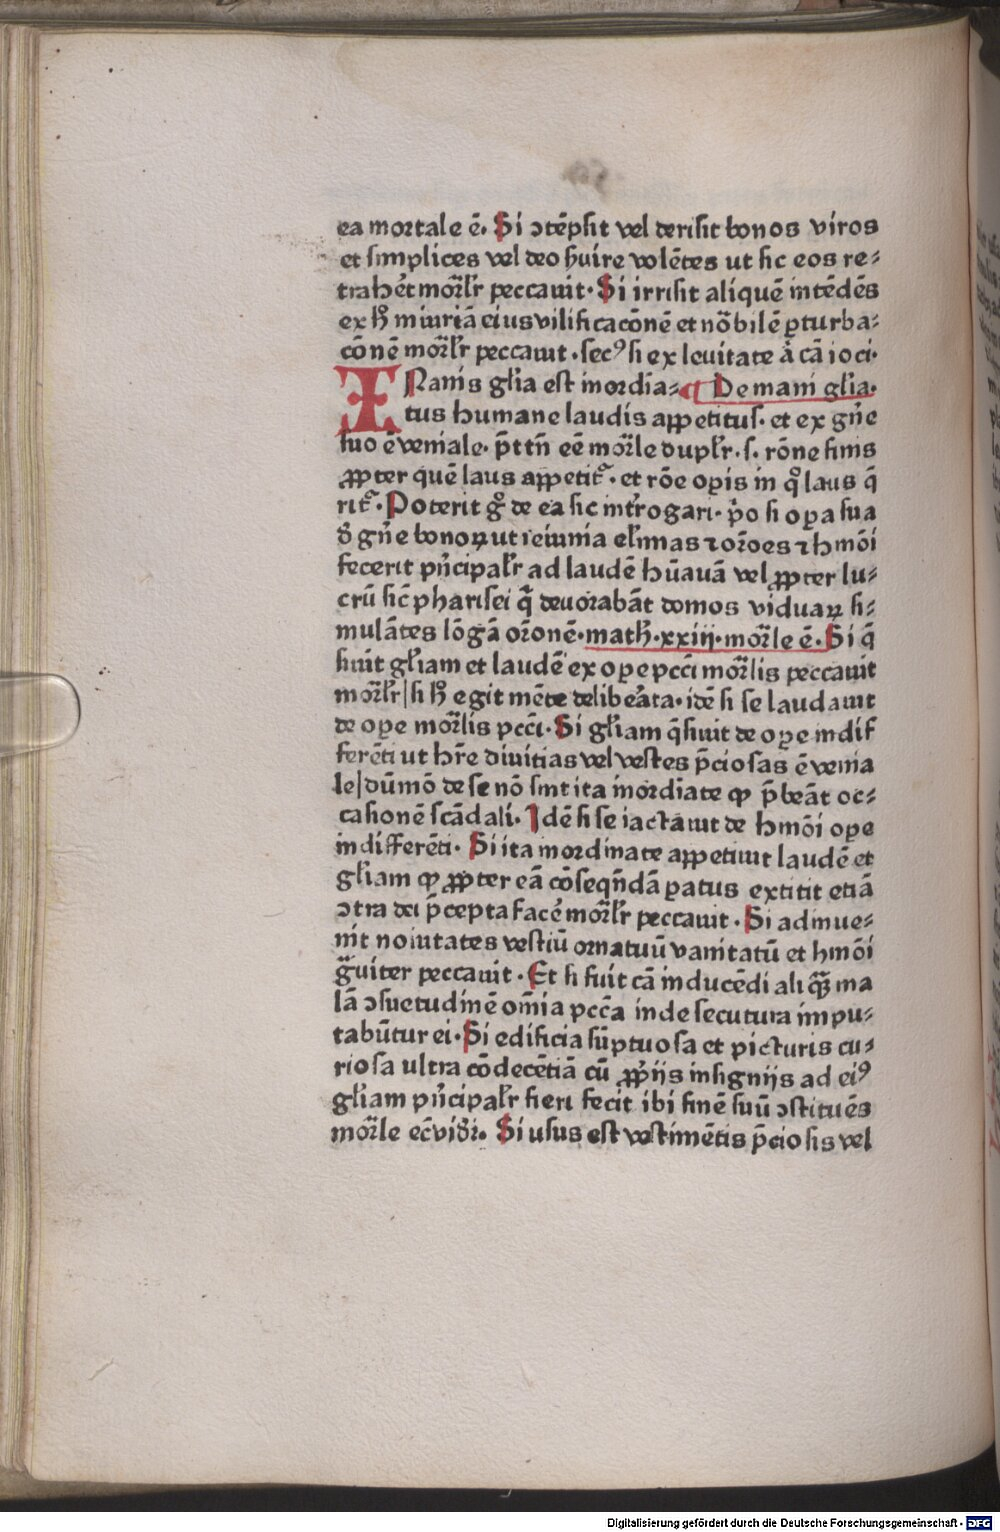 ea mortale ē. Si ↄtēpsit vel derisit bonos viros
et simplices vel deo s̄uire volētes ut sic eos re⸗
trahe̅t mor̄lr̄ peccauit. Si irrisit aliquē intēdēs
ex h̄ iniuriā eius vilificacōnē et nōbilē ꝑturba⸗
cōnē mor̄lr̄ peccauit. secꝰ si ex leuitate a̍ cā ioci.
INanis gl̄ia est inordia⸗ De inani gl̄ia.
tus humane laudis appetitus. et ex gn̄e
suo ē veniale. p̄t tn̄ eē mor̄le duplr̄. s. rōne finis
ꝓpter quē laus appetit᷑. et rōe oꝑis in qͦ laus q̄
rit᷑. Poterit gͦ de ea sic int̄rogari. p̄o si oꝑa sua
d̄ gn̄e bonoꝝ ut ieiunia el̄inas ⁊ orōes ⁊ hmōi
fecerit pn̄cipalr̄ ad laudē hūanā vel ꝓpter lu⸗
crū sic̄ pharisei q̄ deuorabāt domos viduaꝝ si⸗
mulātes lōgā orōnē. math̄. xxiij. mor̄le ē. Si q̄
siuit gl̄iam et laudē ex oꝑe pcc̄i mor̄lis peccauit
mor̄lr̄ | si h̄ egit mēte delibe̍ata. idē si se laudauit
de oꝑe mor̄lis pcc̄i. Si gl̄iam q̄siuit de oꝑe indif
ferēti ut hr̄e diuitias vel vestes p̄ciosas ē venia
le | dūmō de se nō sint ita inordiate ꝙ p̄beāt oc⸗
casionē scādali. Idē si se iactauit de hmōi oꝑe
indifferēti. Si ita inordinate appetiuit laudē et
gl̄iam ꝙ ꝓpter eā cōseqn̄dā paꝛatus extitit etiā
ↄtra dei p̄cepta face̍ mor̄lr̄ peccauit. Si adinue⸗
nit nouitates vestiū ornatuū vanitatū et hmōi
gͣuiter peccauit. Et si fuit cā inducēdi aliquā ma
lā ↄsuetudinē om̄ia pcc̄a inde secutura inpu⸗
tabūtur ei. Si edificia sūptuosa et picturis cu⸗
riosa ultra cōdecētiā cū ꝓprijs insignijs ad eiꝰ
gl̄iam pn̄cipalr̄ fieri fecit ibi finē suū ↄstituēs
mor̄le ec̄ vid̄r. Si usus est vestimētis p̄ciosis vel
Digitalisierung gefördert durch die Deutsche Forschungsgemeinschaft - DFG